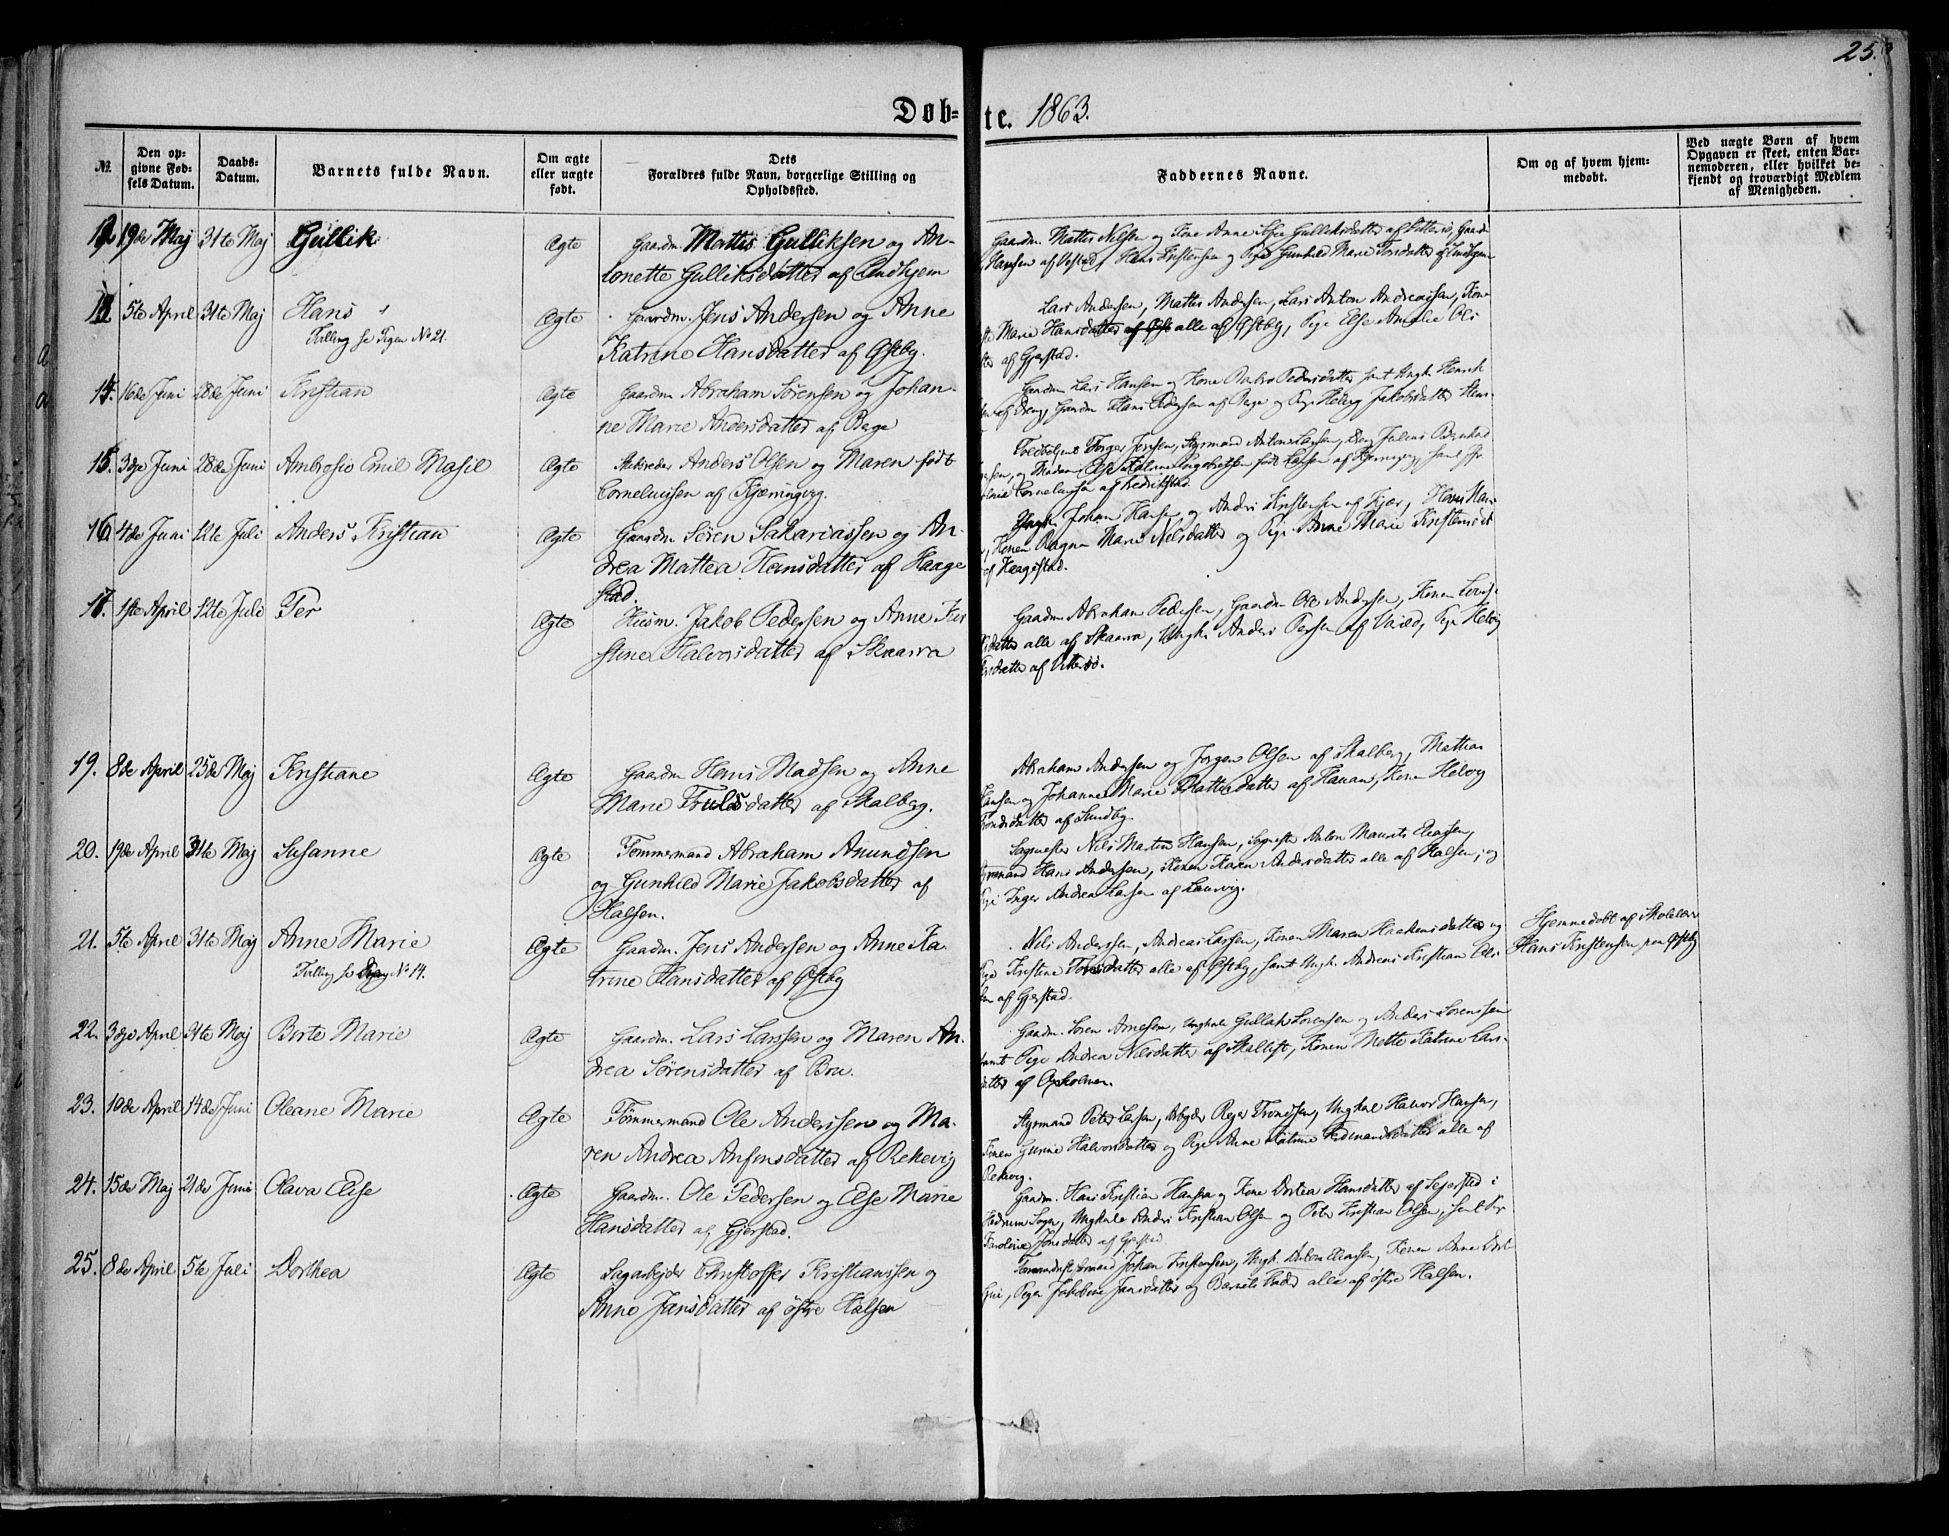 25.
Døb-
te. 1863.
№.
Den op-
givne Fød-
sels Datum.
Daabs-
Datum.
Barnets fulde Navn.
Om ægte
eller uægte
født.
Dets
Forældres fulde Navn, borgerlige Stilling og
Opholdssted.
Faddernes Navne.
Om og af hvem hjem-
medobt.
Ved uægte Børn af hvem
Opgaven er skeet, enten Bar-
nemoderen, eller hvilket be-
kjendt og troværdigt Medlem
af Menigheden.
19de Maj 31te Maj Gullik Ægte Gaardm. Mattis Gulliksen og An-
tonette Gulliksdatter af Lindhjem
Gaardm. Mattis Nilsen og Kone Anne Gulliksdatter af
Hansen af Hans Kristensen og Pige Gunhild Marie
5te April 31te Maj Hans Ægte Gaardm. Jens Andersen og Anne
Tvilling se Pigen No 21.
Katrine Hansdatter af Østby.
Lars Andersen, Mattis Andersen, Lars Anton Andreassen, Kone
Marie Hansdatter alle af Østby, Pige Else Amalie Ols
af Gjerstad.
14. 16de Juni 28de Juni Kristian Ægte Gaardm Abraham Sørensen og Johan-
ne Marie Andersdatter af Berge
Gaardm Lars Hansen og Kone Pedersdatter samt Ungk. Henrik
Gaardm Hans Pedersen af Berge og Pige Helvig Jakobsdatter
15. 3die Juni 28de Juni Ambrosio Emil Masil Ægte Anders Olsen og Maren født
Corneliussen af Kjærringvig.
Jensen, Styrmand Anton Larsen, Julius Bernhard
og Madam Else født Larsen af Kjærringvig, samt
Corneliussen af Fredrikstad.
16. 4de Juni 12te Juli Anders Kristian Ægte Gaardm Sören Sakariassen og An-
drea Mattea Hansdatter af Haage
stad.
Ungk. Johan Hansen og Anders Kristensen af Hans Han-
Konen Ragna Marie Nilsdatter og Pige Anne Marie Kristensdat
af Haagestad.
17. 1ste April 12te Juli Per Ægte Husm. Jakob Pedersen og Anne Kir
stine Halvorsdatter af Skaarra
Gaardm Abraham Pedersen, Gaardm Ole Andersen, Konen Lovise
datter alle af Skaarra, Ungk. Anders Persen af Pige Helvig
datter af Vittersø.
19. 8de April 25de Maj Kristiane Ægte Gaardm Hans Madsen og Anne
Marie Trulsdatter af Skalberg.
Abraham Andersen og Jørgen Olsen af Skalberg, Mattias
Hansen og Johanne Marie Mattisdatter af Hauan, Konen Helvig
datter af Sundby.
20. 19de April 31te Maj Susanne Ægte Tømmermand Abraham Amundsen
og Gunhild Marie Jakobsdatter af
Halsen.
Sagmester Nils Martin Hansen, Sagmester Anton Maurits Eliassen,
Hans Andersen, Konen Karen Andersdatter alle af Halsen, og
Pige Inger Andrea Larsen af Laurvig.
21. 5te April 31te Maj Anne Marie Ægte Gaardm. Jens Andersen og Anne Ka-
Tvilling se No 14.
trine Hansdatter af Østby
Nils Anderssen, Andreas Larssen, Konen Maren Haakensdatter og
Pige Kristine datter alle af Østby, samt Ungk. Andreas Kristian Ols
sen af Gjerstad.
Hjemmedobt af Skolelær
Hans Kristensen paa Østby
22. 3die April 31te Maj Berte Marie Ægte Gaardm. Lars Larssen og Maren An-
drea Sörensdatter af Bru.
Gaardm. Sören Arnesen, Ungkarle Gullik Sörensen og Anders Sörenssen
samt Pige Andrea Nilsdatter af Skallist, Konen Mette Katrine Lars-
datter af Opholmen.
23. 10de April 14de Juni Oleane Marie Ægte Tömmermand Ole Anderssen og Ma-
ren Andrea Ansensdatter af Rekevig
Styrmand Peter Larsen, Arbejder Rejer Trondsen, Ungkarl Halvor Hansen,
Konen Gurine Halvorsdatter og Pige Anne Katrine Ferdinandsdatter alle af
Rekevig.
24. 15de Maj 21de Juni Olava Elise Ægte Gaardm. Ole Pedersen og Else Marie
Hansdatter af Gjerstad.
Gaardm. Hans Kristian Hansen og Kone Dortea Hansdatter af Sejerstad i
Hedrum Sogn, Ungkarle Anders Kristian Olsen og Peter Kristian Olsen, samt
Karoline Jensdatter af Gjerstad
25. 8de April 5te Juli Dorthea Ægte Sagarbejder Christoffer Kristianssen og
Anne Jansdatter af østre Halsen
Johan Kristensen, Ungk. Anton Eliassen, Konen Anne
Pigen Jakobine Jansdatter og Barnets Fader alle af østre Halsen.